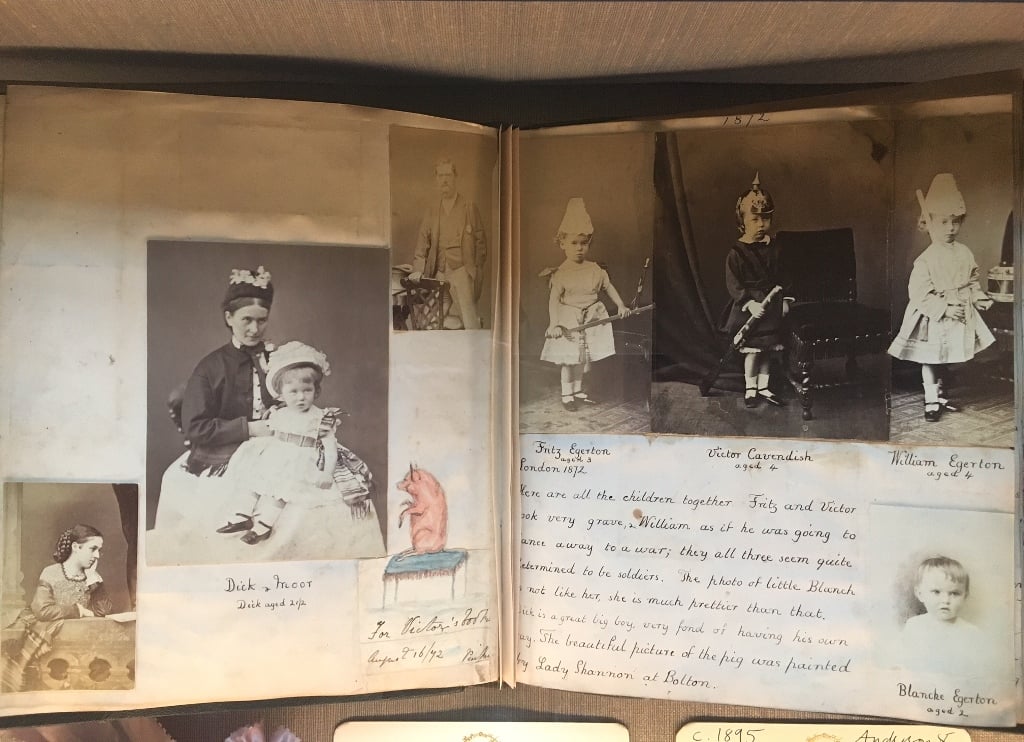 Dick & Moor
Dick aged 2 1/2
For Victor's book
August 16/72
1872
Fritz Egerton
aged 3
London 1872
Victor Cavendish
aged 4
William Egerton
aged 4
Here are all the children together Fritz and Victor
look very grave, & William as if he was going to
dance away to a war; they all three seem quite
determined to be soldiers. The photo of little Blanch
not like her, she is much prettier than that.
Dick is a great big boy, very fond of having his own
way. The beautiful picture of the pig was painted
by Lady Shannon at Bolton.
Blanche Egerton
aged 2
c. 1895